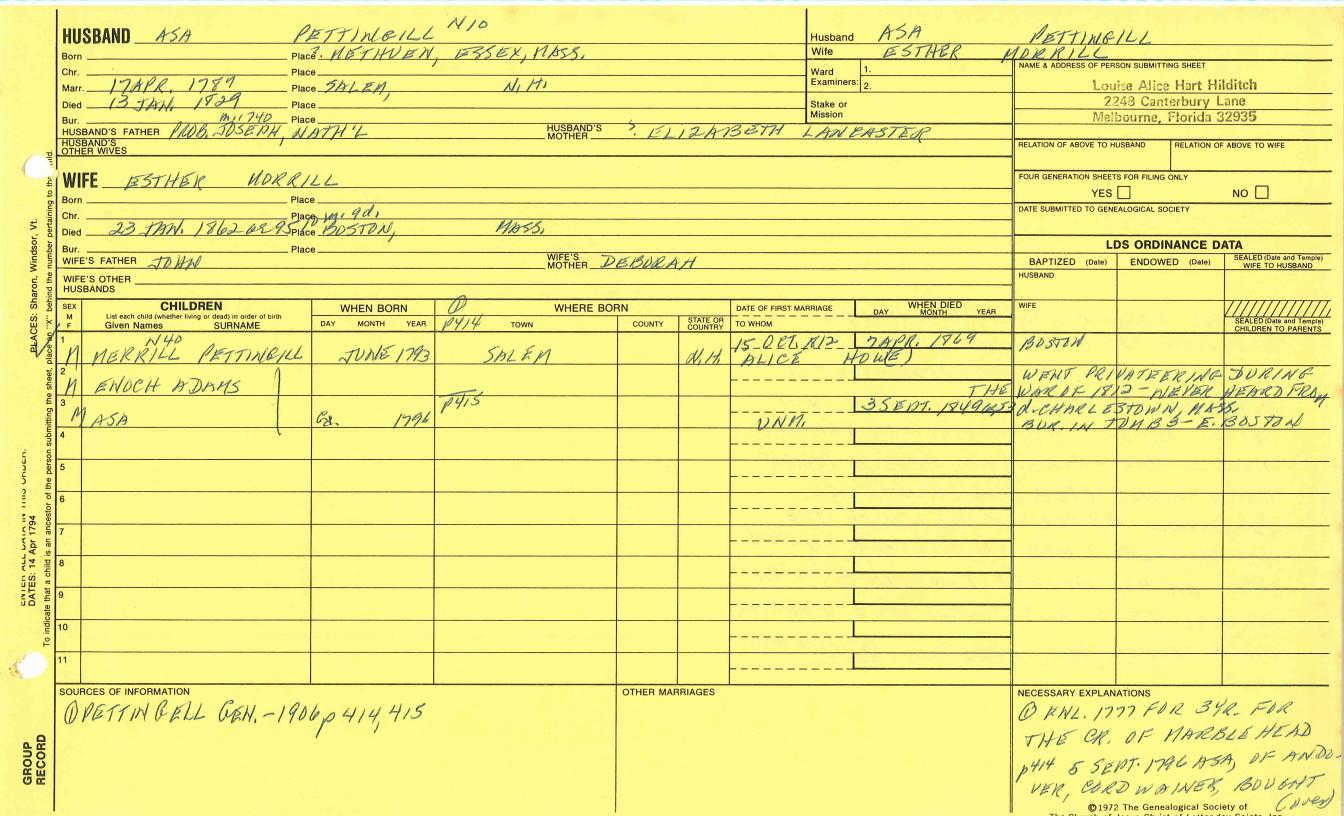 HUSBAND ASA PETTINGILL N10
Born Place ?. METHUEN, ESSEX, MASS.
Chr. Place
Marr. 17 APR. 1789 Place SALEM, N.H.
Died 13 JAN. 1829 Place
Bur. Place
m. 1740
HUSBAND'S FATHER PROB. JOSEPH, NATH'L HUSBAND'S MOTHER ?. ELIZABETH LANCASTER
HUSBAND'S OTHER WIVES
Husband ASA PETTINGILL
Wife ESTHER MORRILL
Ward Examiners: 1.
2.
Stake or Mission
NAME & ADDRESS OF PERSON SUBMITTING SHEET
Louise Alice Hart Hilditch
2248 Canterbury Lane
Melbourne, Florida 32935
RELATION OF ABOVE TO HUSBAND RELATION OF ABOVE TO WIFE
FOUR GENERATION SHEETS FOR FILING ONLY
YES NO
DATE SUBMITTED TO GENEALOGICAL SOCIETY
WIFE ESTHER MORRILL
Born Place
Chr. Place m. 9d.
Died 23 JAN. 1862 Place BOSTON, MASS.
Bur. Place
WIFE'S FATHER JOHN WIFE'S MOTHER DEBORAH
WIFE'S OTHER HUSBANDS
LDS ORDINANCE DATA
BAPTIZED (Date) ENDOWED (Date) SEALED (Date and Temple) WIFE TO HUSBAND
HUSBAND
WIFE
SEALED (Date and Temple) CHILDREN TO PARENTS
SEX M F
CHILDREN
List each child (whether living or dead) in order of birth
Given Names SURNAME
WHEN BORN
DAY MONTH YEAR
① p414
WHERE BORN
TOWN COUNTY STATE OR COUNTRY
DATE OF FIRST MARRIAGE
TO WHOM
WHEN DIED
DAY MONTH YEAR
N40
1 M MERRILL PETTINGILL JUNE 1793 SALEM N.H. 15 OCT. 1812 ALICE HOW(E) 7 APR. 1869 BOSTON
2 M ENOCH ADAMS THE
WENT PRIVATEERING DURING
WAR OF 1812 - NEVER HEARD FROM
p415
3 M ASA Ca. 1796 UNM. 3 SEPT. 1849
d. CHARLESTOWN, MASS.
BUR. IN TOMBS - E. BOSTON
4
5
6
7
8
9
10
11
SOURCES OF INFORMATION
① PETTINGELL GEN. - 1906 p 414, 415
OTHER MARRIAGES
NECESSARY EXPLANATIONS
① ENL. 1777 FOR 3 YR. FOR
THE CR. OF MARBLEHEAD
p414 5 SEPT. 1796 ASA, OF ANDO-
VER, CORDWAINER, BOUGHT
(over)
©1972 The Genealogical Society of
The Church of Jesus Christ of Latter-day Saints, Inc.
PLACES: Sharon, Windsor, Vt.
ENTER ALL DATA IN THIS ORDER:
DATES: 14 Apr 1794
To indicate that a child is an ancestor of the person submitting the sheet, place an "X" behind the number pertaining to the child.
GROUP
RECORD